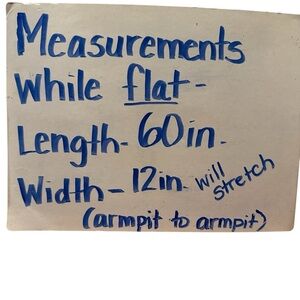 Measurements
While flat -
Length- 60in.
Width - 12in. will stretch
(armpit to armpit)